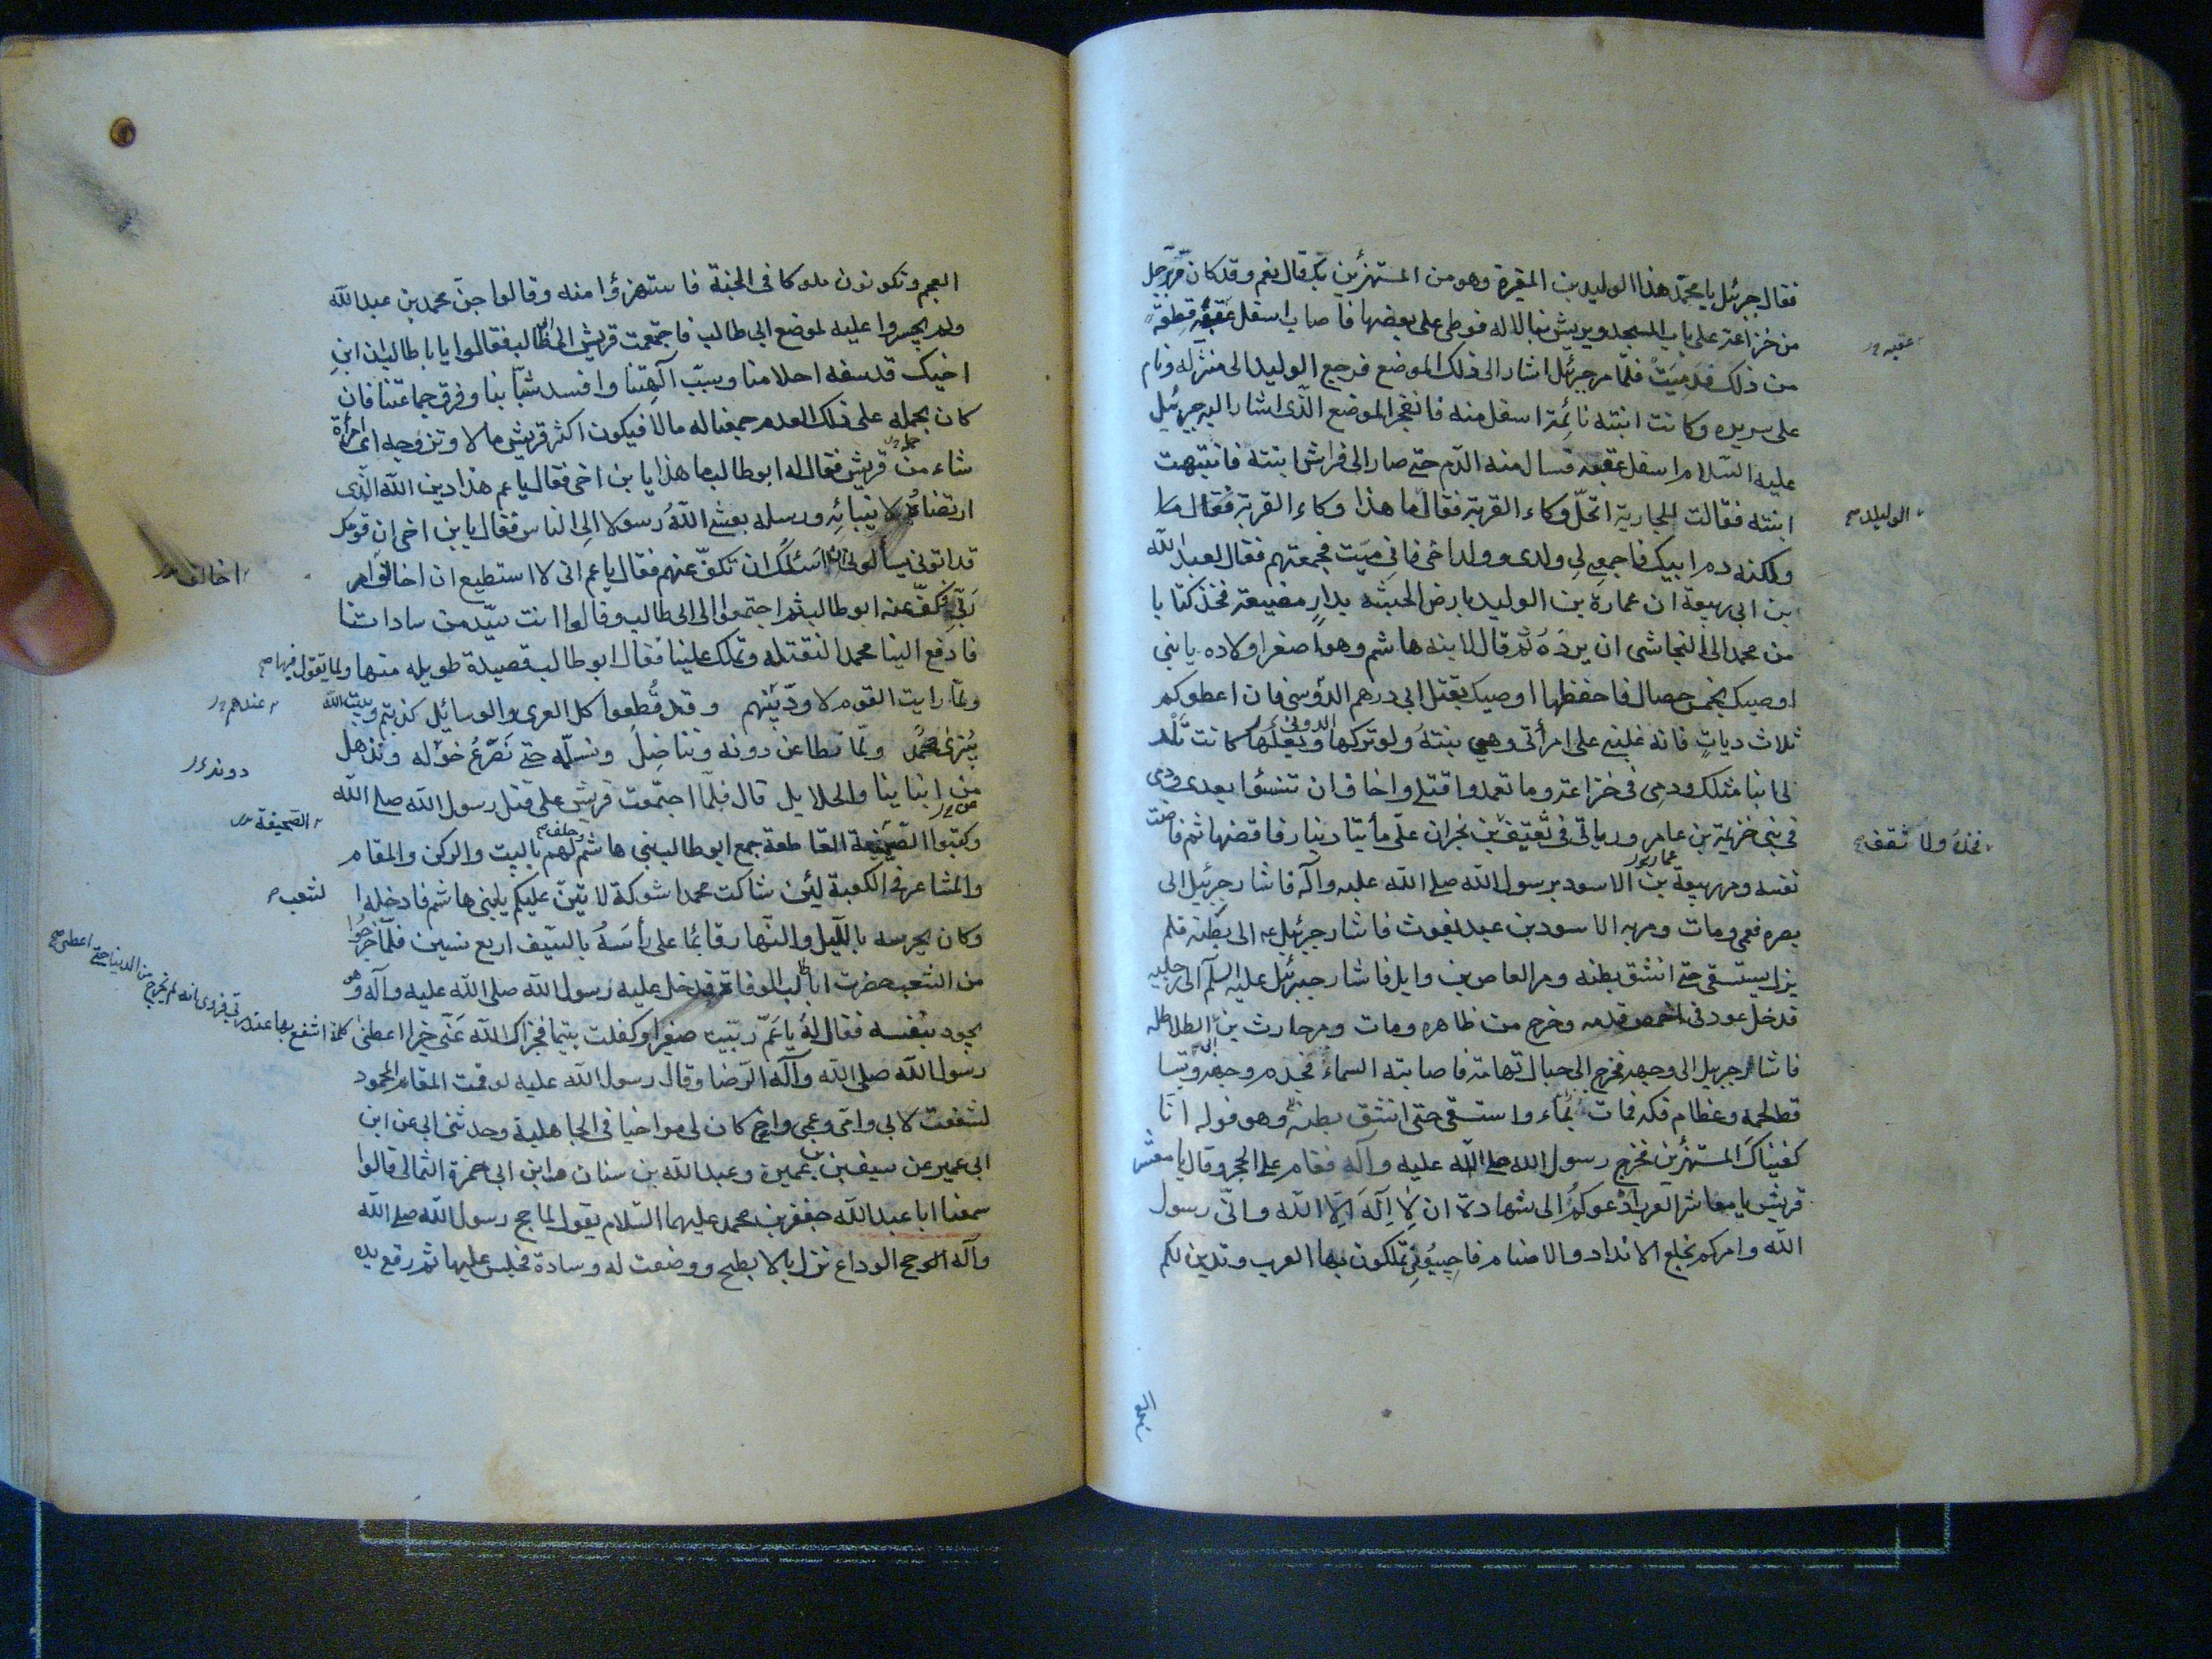 فقال جبرئيل يا محمد هذا الوليد بن المغيرة وهو من المستهزئين بك قال نعم وقد كان مرّ برجل
من خزاعة على باب المسجد ويريش نبالا له فوطى على بعضها فاصاب اسفل عقبه قطعة
من ذلك فدميت فلمّا مر جبرئيل اشار الى ذلك الموضع فرجع الوليد الى منزله ونام
على سريره وكانت ابنته نائمة اسفل منه فانفجر الموضع الذى اشار اليه جبرئيل
عليه السلام اسفل عقبه فسال منه الدّم حتى صار الى فراش ابنته فانتبهت
ابنته فقالت الجارية انحلّ وكاء القربة فقال ما هذا وكاء القربة فقال ما
ولكنه دم ابيك فاجمعى لي ولدى وولد اخى فانى ميّت فجمعتهم فقال لعبد الله
بن ابى ربيعة ان عمارة بن الوليد بارض الحبشه بدارٍ مضيعة فخذ كتابا
من محمد الى النجاشى ان يردّه ثم قال لابنه هاشم وهو اصغر اولاده يا بنى
اوصيك بخمس خصال فاحفظها اوصيك بقتل ابى درهم الدّوسى فان اعطوكم
ثلاث دياتٍ فانه غلبنى على امرأتى وهى بنته ولو تركها وبعلها كانت تلد
لى ابنا مثلك ودمى فى خزاعة وما تعمدوا قتلى واخاف ان تنسئوا بعدى ودمى
فى بنى خزيمة بن عامر ودياتى فى ثقيف بن نجران علىّ مأيتا دينار فاقضها ثم فاضت
نفسه ومر ربيعة بن الاسود برسول الله صلى الله عليه وآله فاشار جبرئيل الى
بصره فعمى ومات ومر به الاسود بن عبد يغوث فاشار جبرئيل عه الى بطنه فلم
يزل يستسقى حتى انشق بطنه ومر العاص بن وايل فاشار جبرئيل عليه السلم الى رجليه
فدخل عود فى اخمص قدمه وخرج من ظاهره ومات ومر حارث بن الطلاطله
فاشار جبريل الى وجهه فخرج الى جبال تهامة فاصابته السماء
واستسقى حتى انشق بطنه وهو قوله انا
كفيناك المستهزئين فخرج رسول الله صلى الله عليه وآله فقام على الحجر وقال يا معشر
قريش يا معاشر العرب ادعوكم الى شهادة ان لا اله الا الله وانّى رسول
الله وامركم بخلع الانداد والاصنام فاجيبونى تملكون بها العرب وتدين لكم
عقبه
الوليد
العجم وتكونون ملوكا فى الجنة فاستهزؤا منه وقالوا جنّ محمد بن عبد الله
ولم يجسروا عليه لموضع ابى طالب فاجتمعت قريش الى ابى طالب فقالوا يا با طالب ان ابن
اخيك قد سفه احلامنا وسبّ آلهتنا وافسد شبّاننا وفرق جماعتنا فان
كان يحمله على ذلك العدم جمعنا له مالا فيكون اكثر قريش مالا وتزوجه اى امرأة
شاء من قريش فقال له ابو طالب ما هذا يا بن اخى فقال يا عم هذا دين الله الّذى
ارتضاه لانبيائه ورسله بعثنى الله رسولا الى الناس فقال يا بن اخى ان قومك
قد اتونى يسألونى ان اسئلك ان تكفّ عنهم فقال يا عم انى لا استطيع ان اخالف امر
ربّى فكفّ عنه ابو طالب ثم اجتمعوا الى ابى طالب وقالوا انت سيّد من ساداتنا
فادفع الينا محمدا لنقتله وتملك علينا فقال ابو طالب قصيدة طويله منها ولما يقول فيها
ولمّا رايت القوم لا ودّ بينهم وقد قطعوا كل العرى والوسائل كذبتم وبيت الله
يبزى محمد ولمّا نطاعن دونه ونناضل ونسلّمه حتى نصرّع حوله ونذهل
من ابناينا والحلايل قال فلمّا اجتمعت قريش على قتل رسول الله صلى الله
وكتبوا الصّحيفة القاطعة جمع ابو طالب بنى هاشم وحلف لهم بالبيت والركن والمقام
والمشاعر فى الكعبة لئن شاكت محمدا شوكة لاتينّ عليكم يا بنى هاشم فادخله
وكان يحرسه بالليل والنّهار قائما على رأسه بالسّيف اربع سنين فلمّا خرجوا
من الشعب حضرت ابا طالب الوفاة فدخل عليه رسول الله صلى الله عليه وآله وهو
يجود بنفسه فقال له يا عمّ ربّيت صغيرا وكفلت يتيما فجزاك الله عنّى خيرا اعطنى كلمة اشفع بها عند ربى فروى انه لم يخرج من الدنيا حتى اعطى
رسول الله صلى الله وآله الرّضا وقال رسول الله عليه لو قمت المقام المحمود
لشفعت لابى وامّى وعمّى واخ كان لى مواخيا فى الجاهلية وحدثنى ابى عن ابن
ابى عمير عن سيف بن عميرة وعبد الله بن سنان وابن ابى حمزة الثمالى قالوا
سمعنا ابا عبد الله جعفر بن محمد عليهما السّلام يقول لما حج رسول الله صلى الله
وآله حج الوداع نزل بالابطح ووضعت له وسادة فجلس عليها ثم رفع يده
اخالف
عندهم
دونه
الصحيفة
لشعب